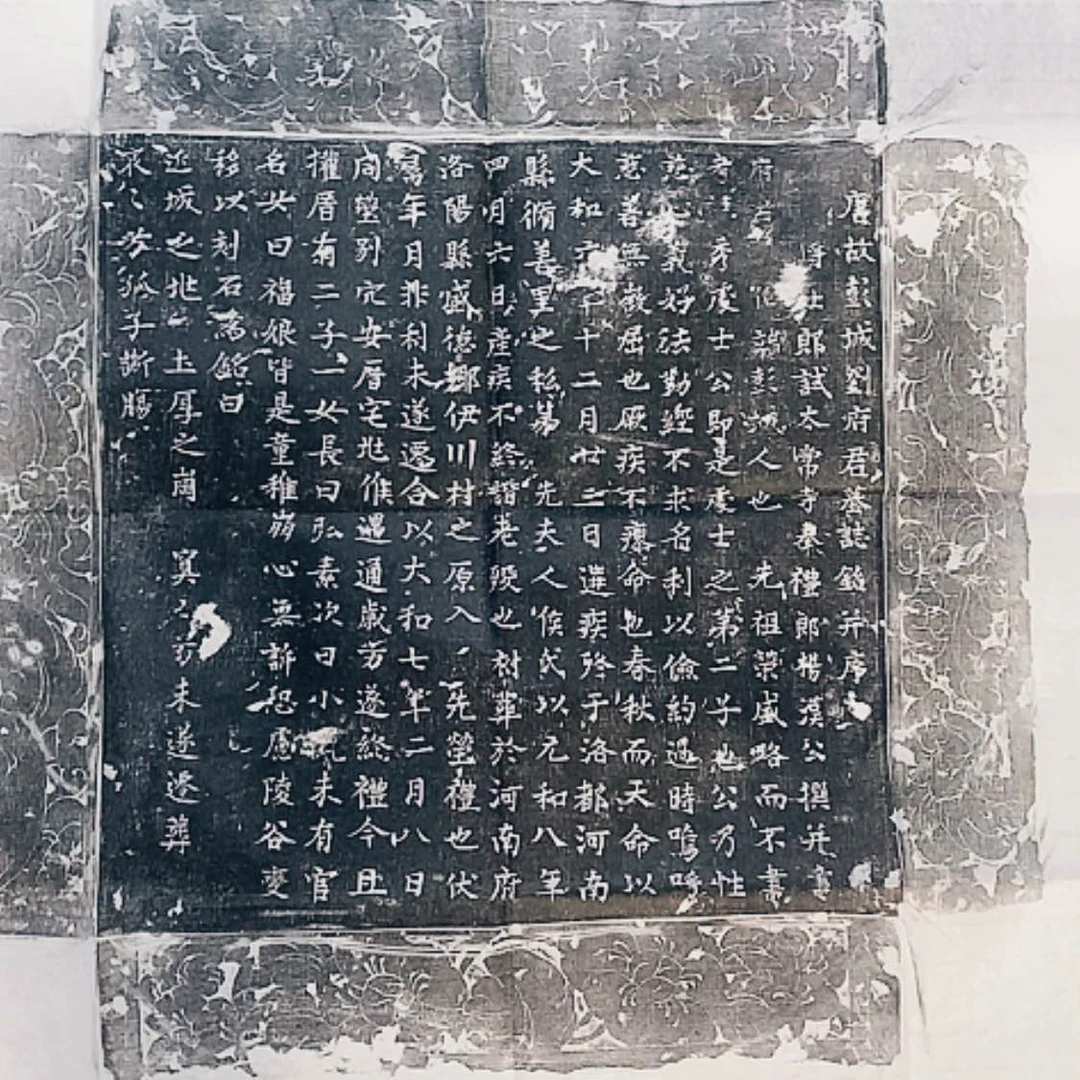 唐故彭城劉府君墓誌銘并序
將仕郎試太常寺奉禮郎楊漢公撰并書
府君 彭城人也 先祖榮盛略而不書
考 處士公即是處士之第二子也公乃性
義好法勤經不求名利以儉約過時嗚呼
慈善無 屈也厥疾不瘳命也春秋而天命以
大和六年十二月廿三日遘疾終于洛都河南
縣脩善里之私第 先夫人侯氏以元和八年
四月六日 疾不終諧老歿也祔葬於河南府
洛陽縣感德鄉伊川村之原入 先塋禮也伏
為年月非利未遂遷合以大和七年二月八日
同塋別穴安厝宅地俟遇通歲方遂終禮今且
權厝有二子一女長曰弘素次曰小 未有官
名女曰福娘皆是童稚崩心無訴恐慮陵谷變
移以刻石為銘曰
孤墳之地 土厚之崗 未遂遷葬
孤子斷腸